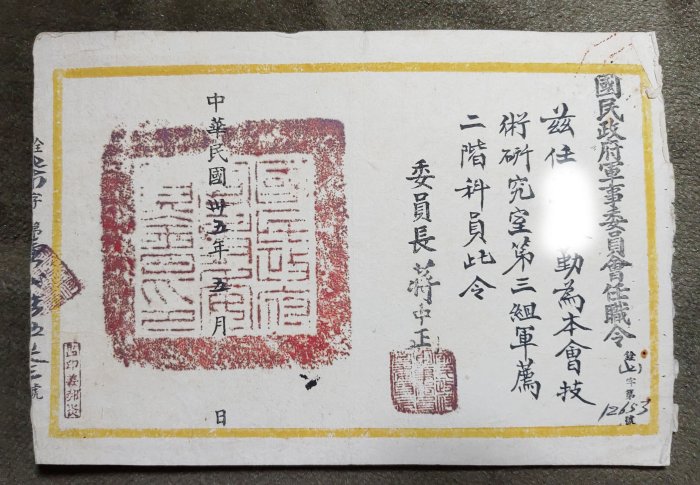 國民政府軍事委員會任職令
銓(上)字第12653號
茲任 勤為本會技
術研究室第三組軍薦
二階科員此令
委員長蔣中正
中華民國卅五年五月 日